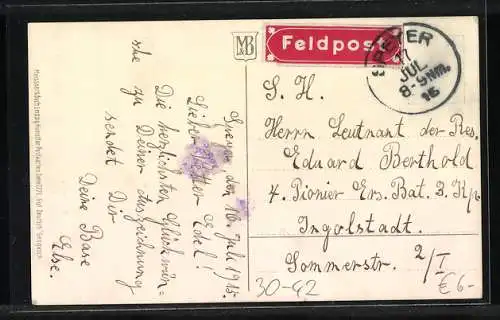 MB
Feldpost
SPEYER
JUL
8-9 Nm.
15
S. H.
Herrn Leutnant der Res.
Eduard Berthold
4. Pionier Ers. Bat. 2. Kp.
Ingolstadt.
Sommerstr. 2/I
Speyer, den 10. Juli 1915.
Lieber Vetter Edel!
Die herzlichsten Glückwün-
sche zu Deiner Auszeichnung
sendet Dir
Deine Base
Else.
30-42
€ 6-